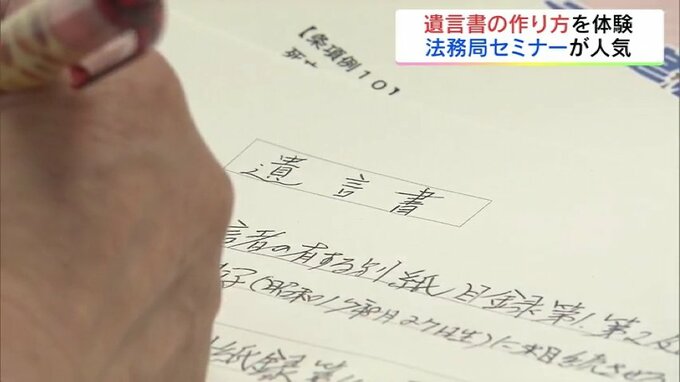 遺言書の作り方を体験
法務局セミナーが人気
【条項例10】
遺言書
言者の有する別紙目録第1、第2
(昭和17年8月27日生)に相続させ
紙目録第